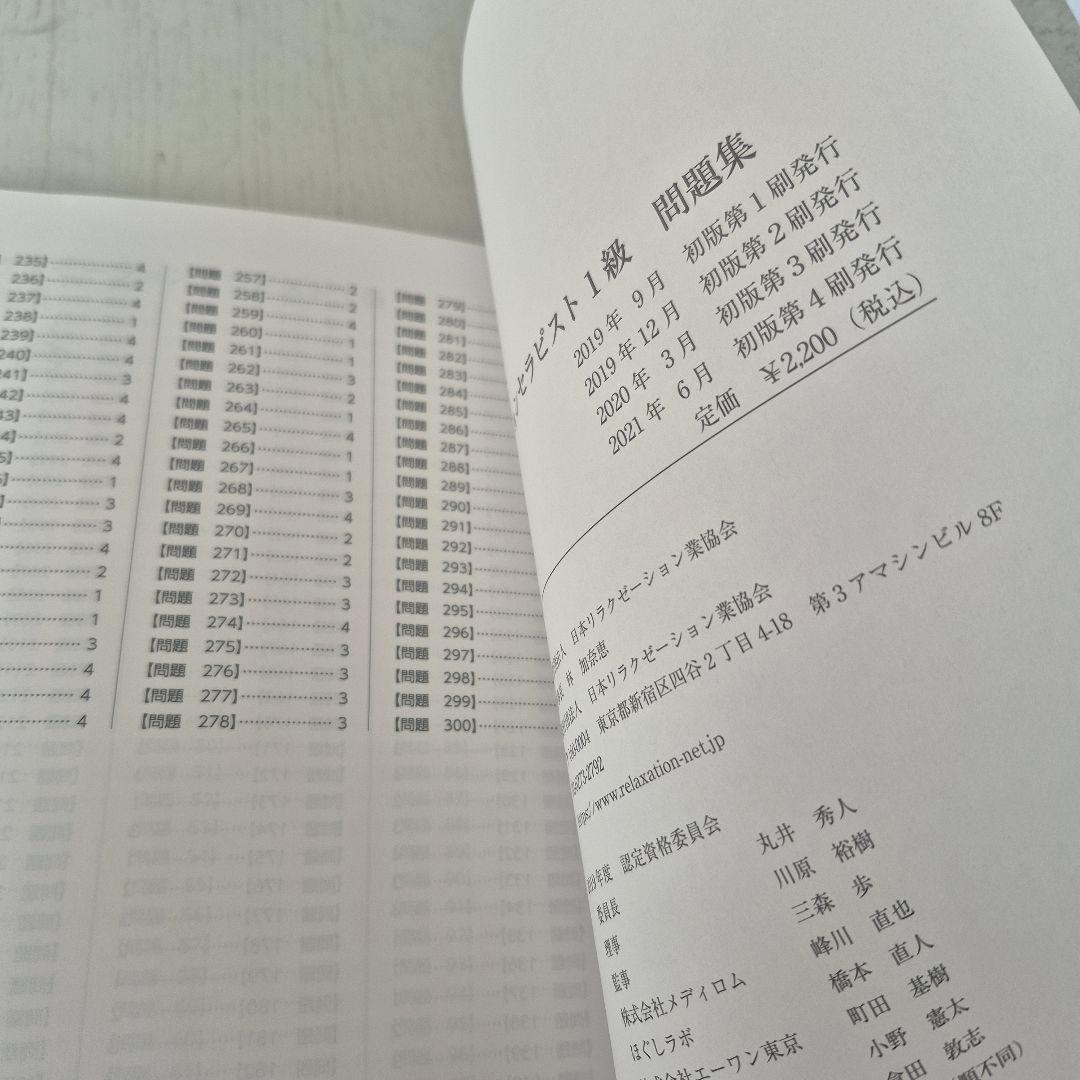 235】 4
236】 2
237】 4
238】 1
239】 4
240】 4
241】 3
42】 4
43】 4
4】 2
5】 4
1
3
3
4
2
1
1
3
4
4
4
【問題 257】 2
【問題 258】 2
【問題 259】 4
【問題 260】 1
【問題 261】 1
【問題 262】 3
【問題 263】 2
【問題 264】 1
【問題 265】 4
【問題 266】 1
【問題 267】 1
【問題 268】 3
【問題 269】 4
【問題 270】 2
【問題 271】 2
【問題 272】 3
【問題 273】 3
【問題 274】 4
【問題 275】 3
【問題 276】 3
【問題 277】 3
【問題 278】 3
【問題 279】
【問題 280】
【問題 281】
【問題 282】
【問題 283】
【問題 284】
【問題 285】
【問題 286】
【問題 287】
【問題 288】
【問題 289】
【問題 290】
【問題 291】
【問題 292】
【問題 293】
【問題 294】
【問題 295】
【問題 296】
【問題 297】
【問題 298】
【問題 299】
【問題 300】
セラピスト1級 問題集
2019年 9月 初版第1刷発行
2019年12月 初版第2刷発行
2020年 3月 初版第3刷発行
2021年 6月 初版第4刷発行
定価 ¥2,200（税込）
日本リラクゼーション業協会
林 加奈恵
日本リラクゼーション業協会
0004 東京都新宿区四谷2丁目4-18 第3アマシンビル8F
273-2792
https://www.relaxation-net.jp
年度 認定資格委員会
委員長 丸井 秀人
理事 川原 裕樹
監事 三森 歩
株式会社メディロム 峰川 直也
ほぐしラボ 橋本 直人
株式会社エーワン東京 町田 基樹
小野 憲太
倉田 敦志
順不同）